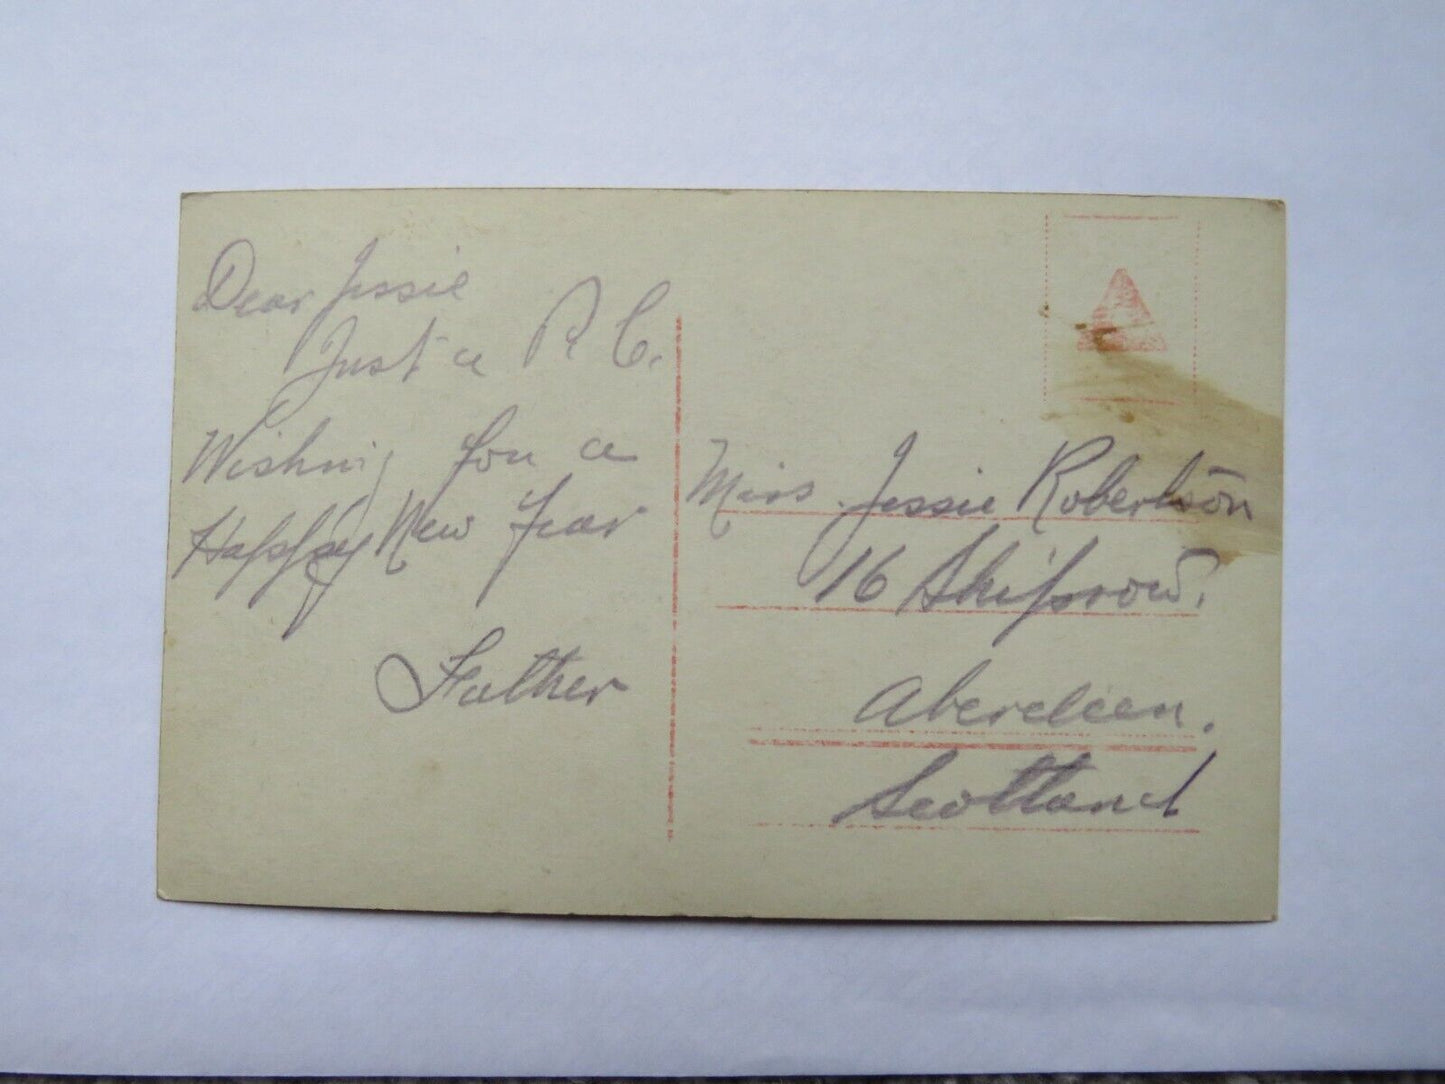 Dear Jessie
Just a P. C.
Wishing You a
Happy New Year
Father
Miss Jessie Robertson
16 Shiprow.
Aberdeen.
Scotland